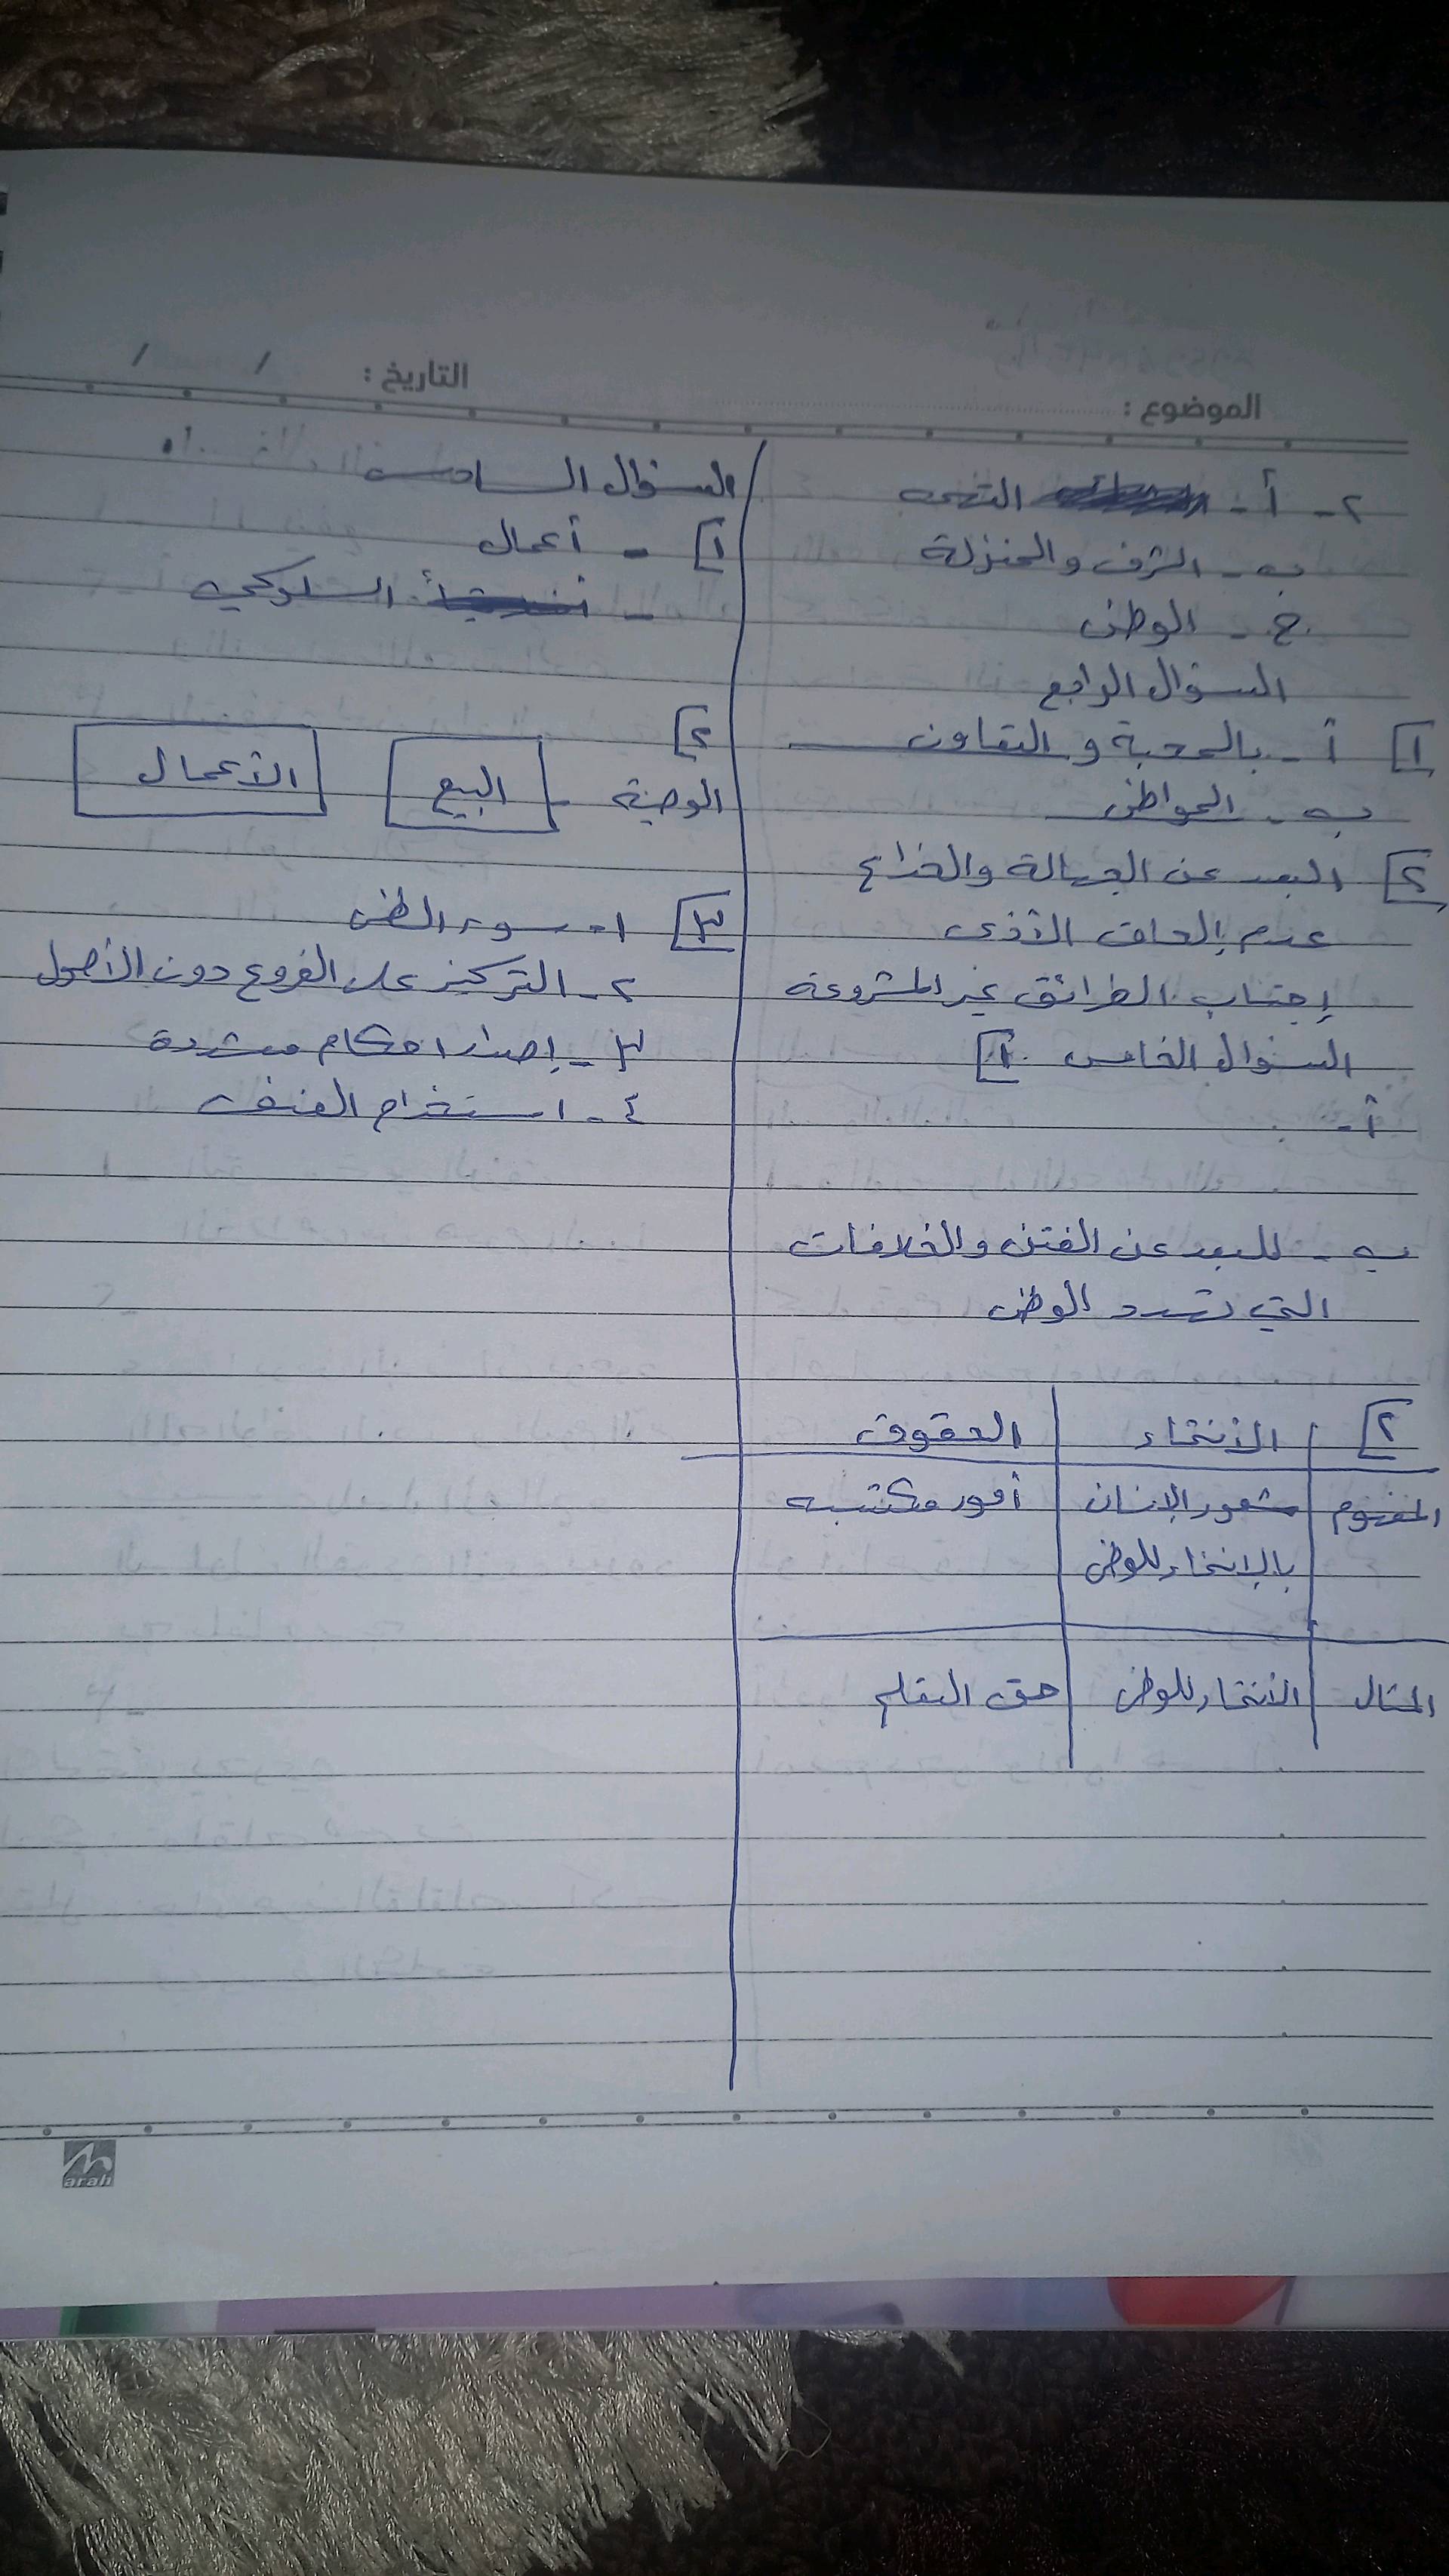 الموضوع :
التاريخ : / /
٢ - أ - التعصب
ب - الشرف والمنزلة
ج - الوطن
السؤال الرابع
١ أ - بالمحبة و التعاون
ب - المواطن
٢ البعد عن الجهالة والخداع
عدم إلحاق الأذى
إجتناب الطرائق غير المشروعة
السؤال الخامس ١
أ -
ب - للبعد عن الفتن والخلافات
التي تهدد الوطن
٢ الأنتماء الحقوق
المفهوم شعور الإنسان أمور مكتسبه
بالإنتماء للوطن
المثال الأنتماء للوطن حق التعلم
السؤال السادس
١ - أعمال
- السلوكي
٢
الوصية - البيع الأعمال
٣ ١ - سوء الظن
٢ - التركيز على الفروع دون الأصول
٣ - إصدار احكام متشددة
٤ - استخدام العنف
arah